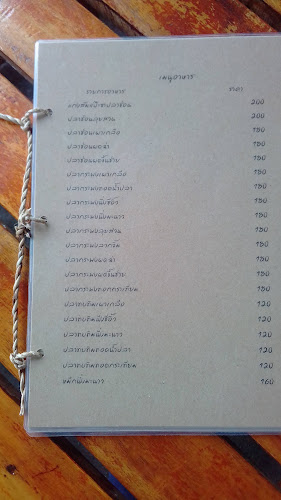 เมนูอาหาร
รายการอาหาร ราคา
แกงส้มแป๊ะซะปลาช่อน 200
ปลาช่อนลุยสวน 200
ปลาช่อนเผาเกลือ 150
ปลาช่อนผมน้ำ 150
ปลาช่อนผงขึ้นฉ่าย 150
ปลากระพงเผาเกลือ 150
ปลากระพงทอดน้ำปลา 150
ปลากระพงนึ่งซีอิ้ว 150
ปลากระพงนึ่งมะนาว 150
ปลากระพงลุยสวน 150
ปลากระพงลวกจิ้ม 150
150
ปลากระพงผงขึ้นฉ่าย 150
ปลากระพงทอดกระเทียม 150
ปลาทับทิมเผาเกลือ 120
ปลาทับทิมนึ่งซีอิ้ว 120
ปลาทับทิมนึ่งมะนาว 120
ปลาทับทิมทอดน้ำปลา 120
ปลาทับทิมทอดกระเทียม 120
หมึกนึ่งมะนาว 160